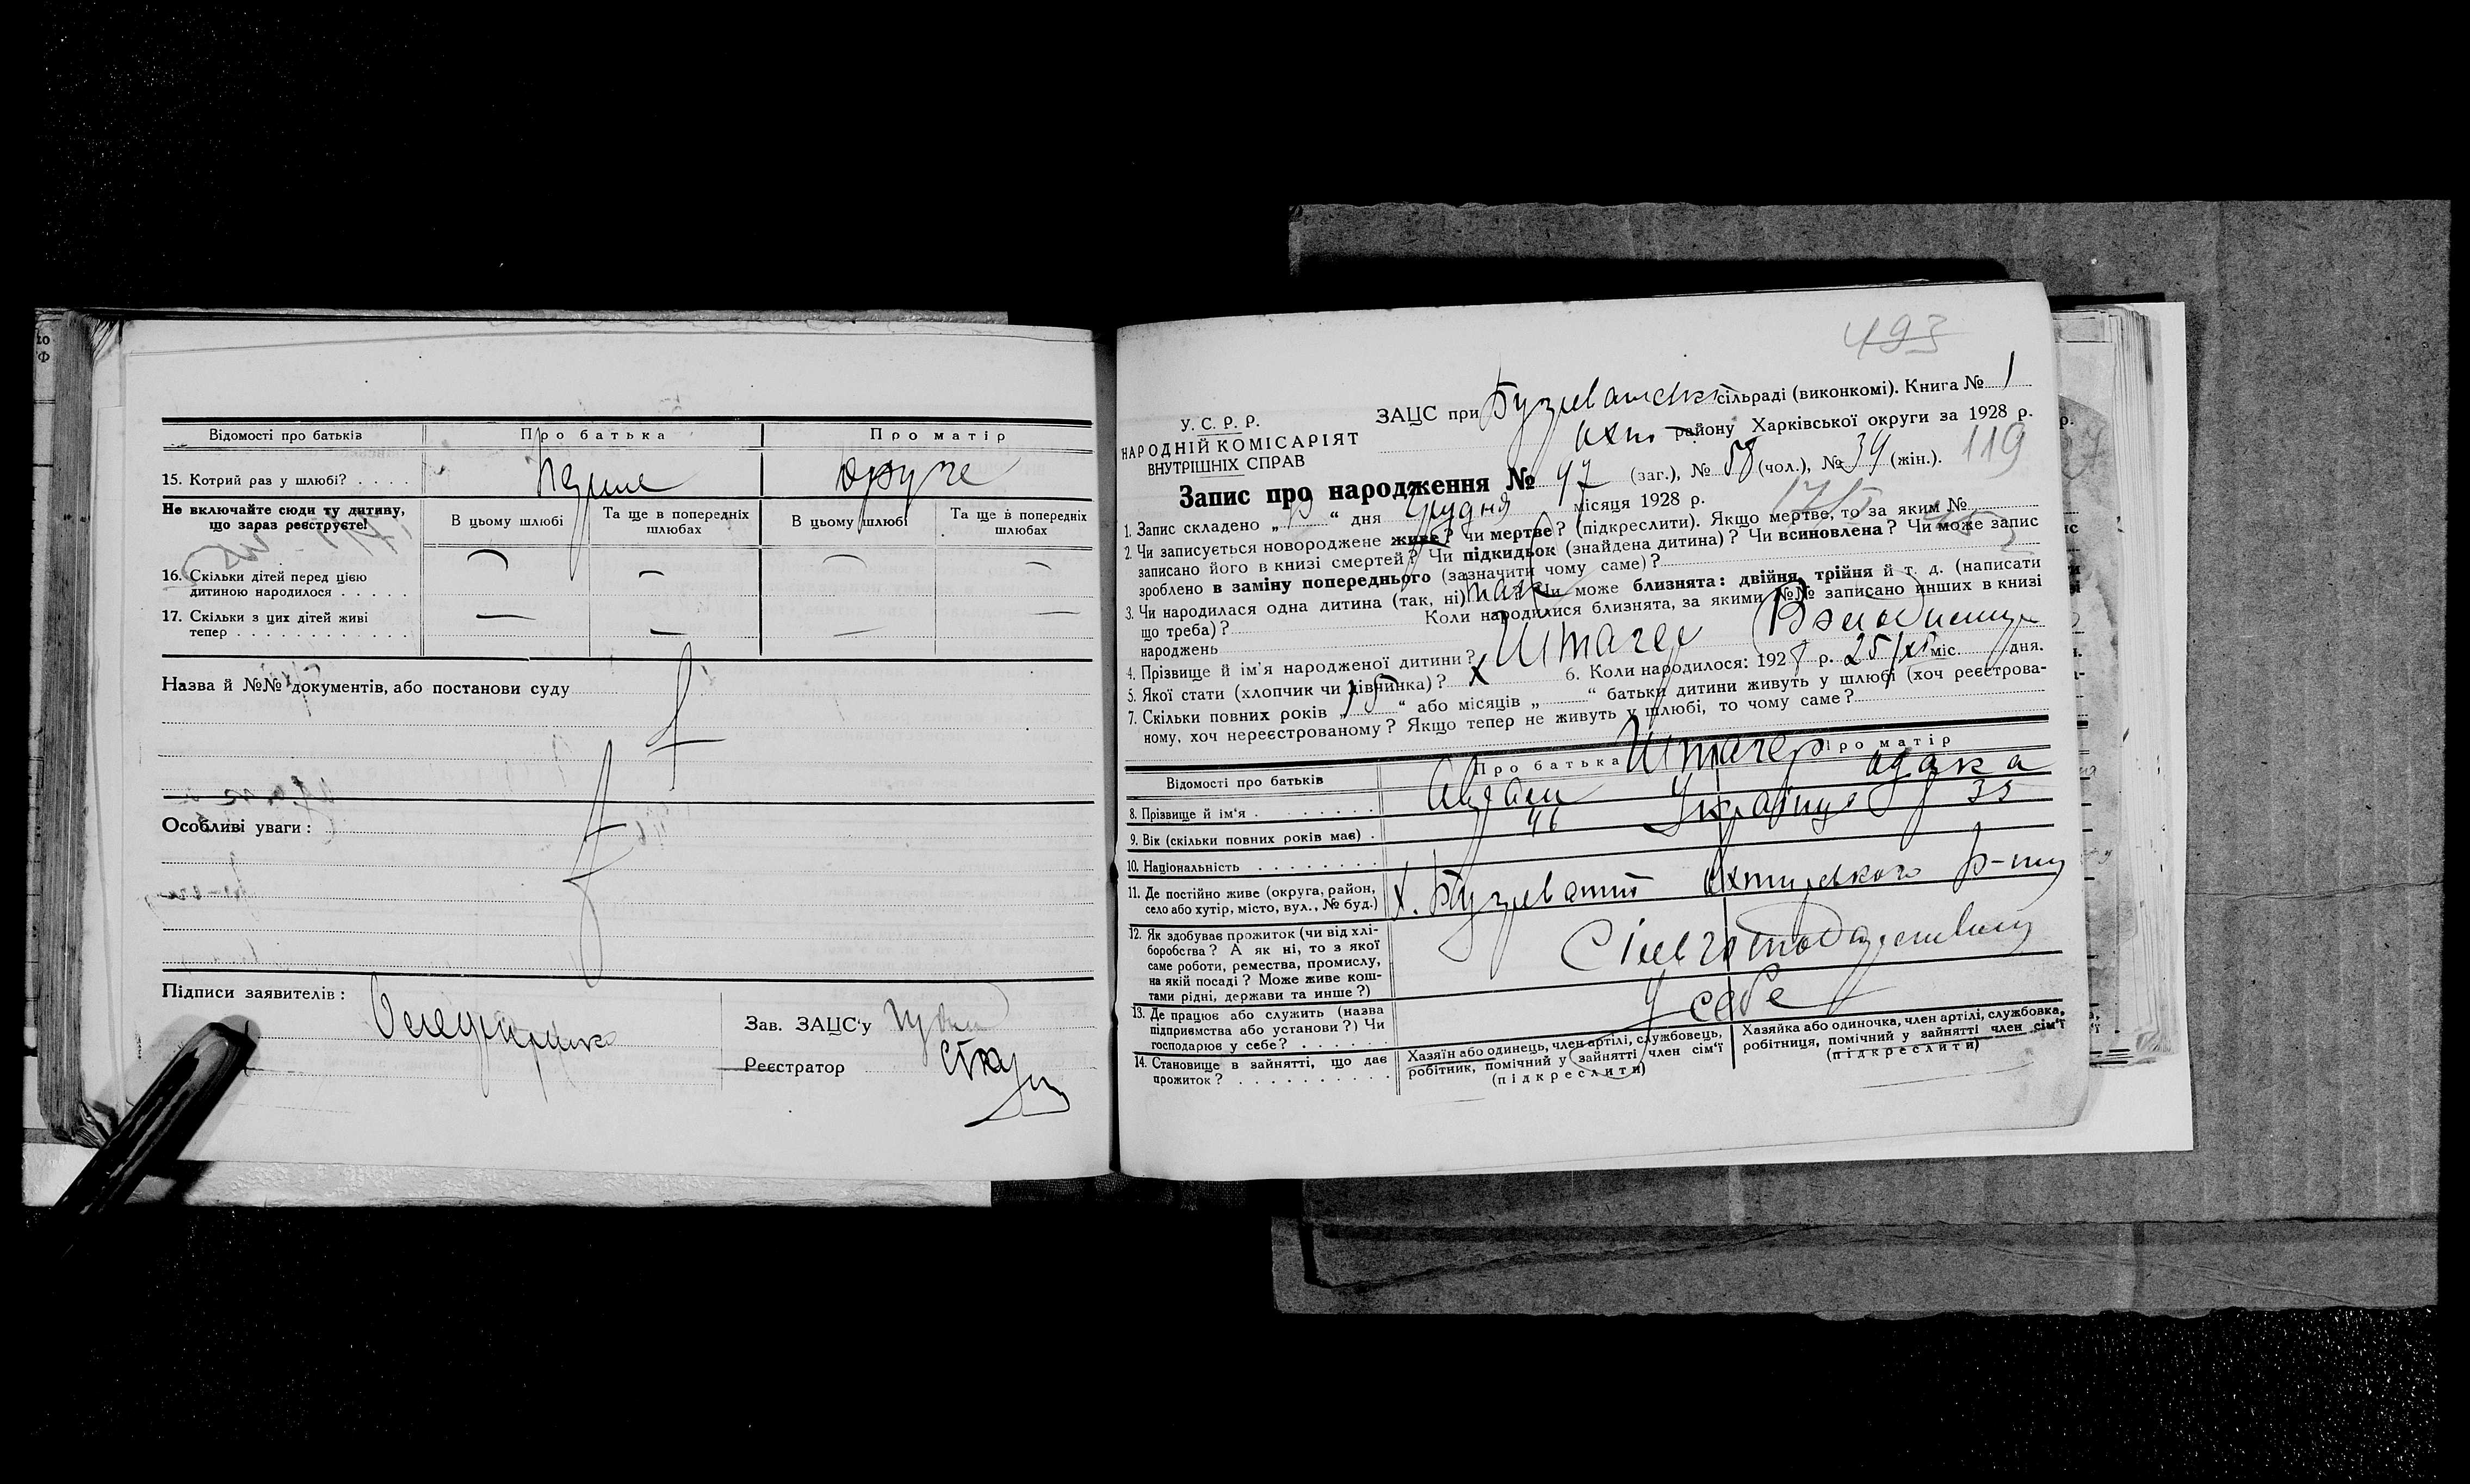 Відомості про батьків
Про батька
Про матір
15. Котрий раз у шлюбі? . . . .
перше
друге
Не включайте сюди ту дитину,
що зараз реєструєте!
В цьому шлюбі
Та ще в попередніх
шлюбах
В цьому шлюбі
Та ще в попередніх
шлюбах
16. Скільки дітей перед цією
дитиною народилося . . . . .
— — — —
17. Скільки з цих дітей живі
тепер . . . . . . . . . . . .
— — — —
Назва й №№ документів, або постанови суду
Особливі уваги:
Підписи заявителів:
Зав. ЗАЦС'у
Реєстратор
493
У. С. Р. Р.
НАРОДНІЙ КОМІСАРІЯТ
ВНУТРІШНІХ СПРАВ
ЗАЦС при сільраді (виконкомі). Книга № 1
Охт району Харківської округи за 1928 р.
119
Запис про народження № 97 (заг.), № 58 (чол.), № 39 (жін.).
1. Запис складено „ “ дня Грудня місяця 1928 р.
2. Чи записується новороджене живе? чи мертве? (підкреслити). Якщо мертве, то за яким №
записано його в книзі смертей? Чи підкидьок (знайдена дитина)? Чи всиновлена? Чи може запис
зроблено в заміну попереднього (зазначити чому саме)?
3. Чи народилася одна дитина (так, ні) так Чи може близнята: двійня, трійня й т. д. (написати
що треба)? Коли народилися близнята, за якими №№ записано инших в книзі
народжень
4. Прізвище й ім'я народженої дитини?
5. Якої стати (хлопчик чи дівчинка)? х 6. Коли народилося: 1928 р. 25/XI міс. дня.
7. Скільки повних років „ 15 “ або місяців „ “ батьки дитини живуть у шлюбі (хоч реєстрова-
ному, хоч нереєстрованому? Якщо тепер не живуть у шлюбі, то чому саме?
Відомості про батьків
Про батька
Про матір
8. Прізвище й ім'я . . . . . . . .
9. Вік (скільки повних років має) .
46
35
10. Національність . . . . . . .
Українці
11. Де постійно живе (округа, район,
село або хутір, місто, вул., № буд.)
х. Охтирського р-ну
12. Як здобуває прожиток (чи від хлі-
боробства? А як ні, то з якої
саме роботи, ремества, промислу,
на якій посаді? Може живе кош-
тами рідні, держави та инше?)
13. Де працює або служить (назва
підприємства або установи?) Чи
господарює у себе? . . . . . .
У себе
14. Становище в зайнятті, що дає
прожиток? . . . . . . . . . .
Хазяїн або одинець, член артілі, службовець,
робітник, помічний у зайнятті член сім'ї
(підкреслити)
Хазяйка або одиночка, член артілі, службовка,
робітниця, помічний у зайнятті член сім'ї
(підкреслити)